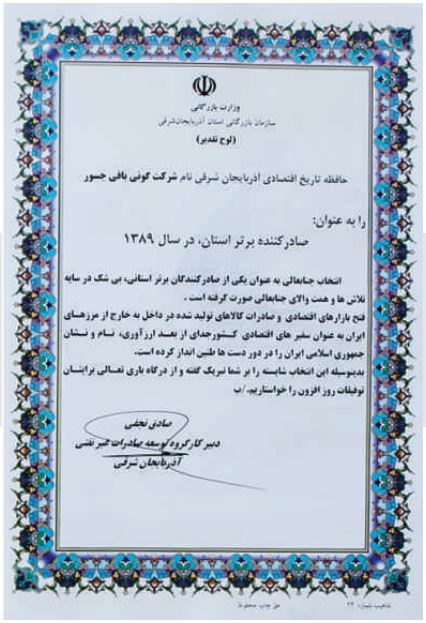 وزارت بازرگانی
سازمان بازرگانی استان آذربایجان‌شرقی
(لوح تقدیر)
حافظه تاریخ اقتصادی آذربایجان شرقی نام شرکت گونی بافی جسور
را به عنوان:
صادرکننده برتر استان، در سال ۱۳۸۹
انتخاب جنابعالی به عنوان یکی از صادرکنندگان برتر استانی، بی شک در سایه
تلاش ها و همت والای جنابعالی صورت گرفته است .
فتح بازارهای اقتصادی و صادرات کالاهای تولید شده در داخل به خارج از مرزهای
ایران به عنوان سفیر های اقتصادی کشورجدای از بعد ارزآوری، نام و نشان
جمهوری اسلامی ایران را در دور دست ها طنین انداز کرده است.
بدینوسیله این انتخاب شایسته را بر شما تبریک گفته و از درگاه باری تعالی برایتان
توفیقات روز افزون را خواستاریم./ب
صادق نجفی
دبیر کارگروه توسعه صادرات غیر نفتی
آذربایجان شرقی
تذهیب شماره ۲۹ حق چاپ محفوظ